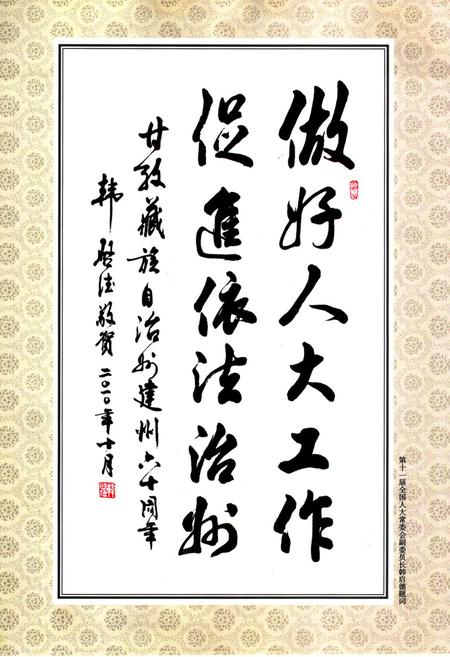 做好人大工作
促進依法治州
甘孜藏族自治州建州六十周年
韩启德敬贺 二〇一〇年十月
第十一届全国人大常委会副委员长韩启德题词